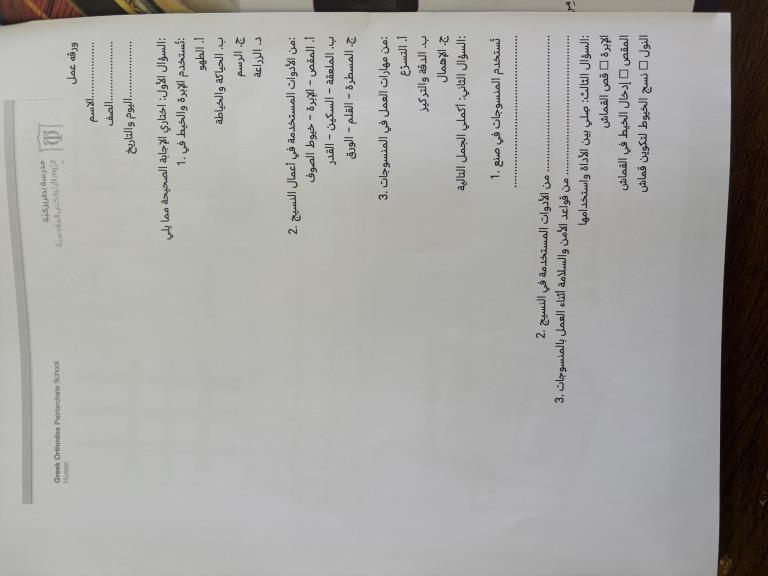 مدرسة بطريركية
الروم الأرثوذكس المقدسية
Greek Orthodox Patriarchate School
Huson
ورقه عمل
الاسم......................
الصف......................
اليوم والتاريخ......................
:السؤال الأول: اختاري الإجابة الصحيحة مما يلي
:تُستخدم الإبرة والخيط في .1
أ. الطهو
ب. الحياكة والخياطة
ج. الرسم
د. الزراعة
:من الأدوات المستخدمة في أعمال النسيج .2
أ. المقص – الإبرة – خيوط الصوف
ب. الملعقة – السكين – القدر
ج. المسطرة – القلم – الورق
:من مهارات العمل في المنسوجات .3
أ. التسرّع
ب. الدقة والتركيز
ج. الإهمال
:السؤال الثاني: أكملي الجمل التالية
تُستخدم المنسوجات في صنع .1
......................
...................... من الأدوات المستخدمة في النسيج .2
...................... من قواعد الأمن والسلامة أثناء العمل بالمنسوجات .3
:السؤال الثالث: صلي بين الأداة واستخدامها
الإبرة □ قص القماش
المقص □ إدخال الخيط في القماش
النول □ نسج الخيوط لتكوين قماش